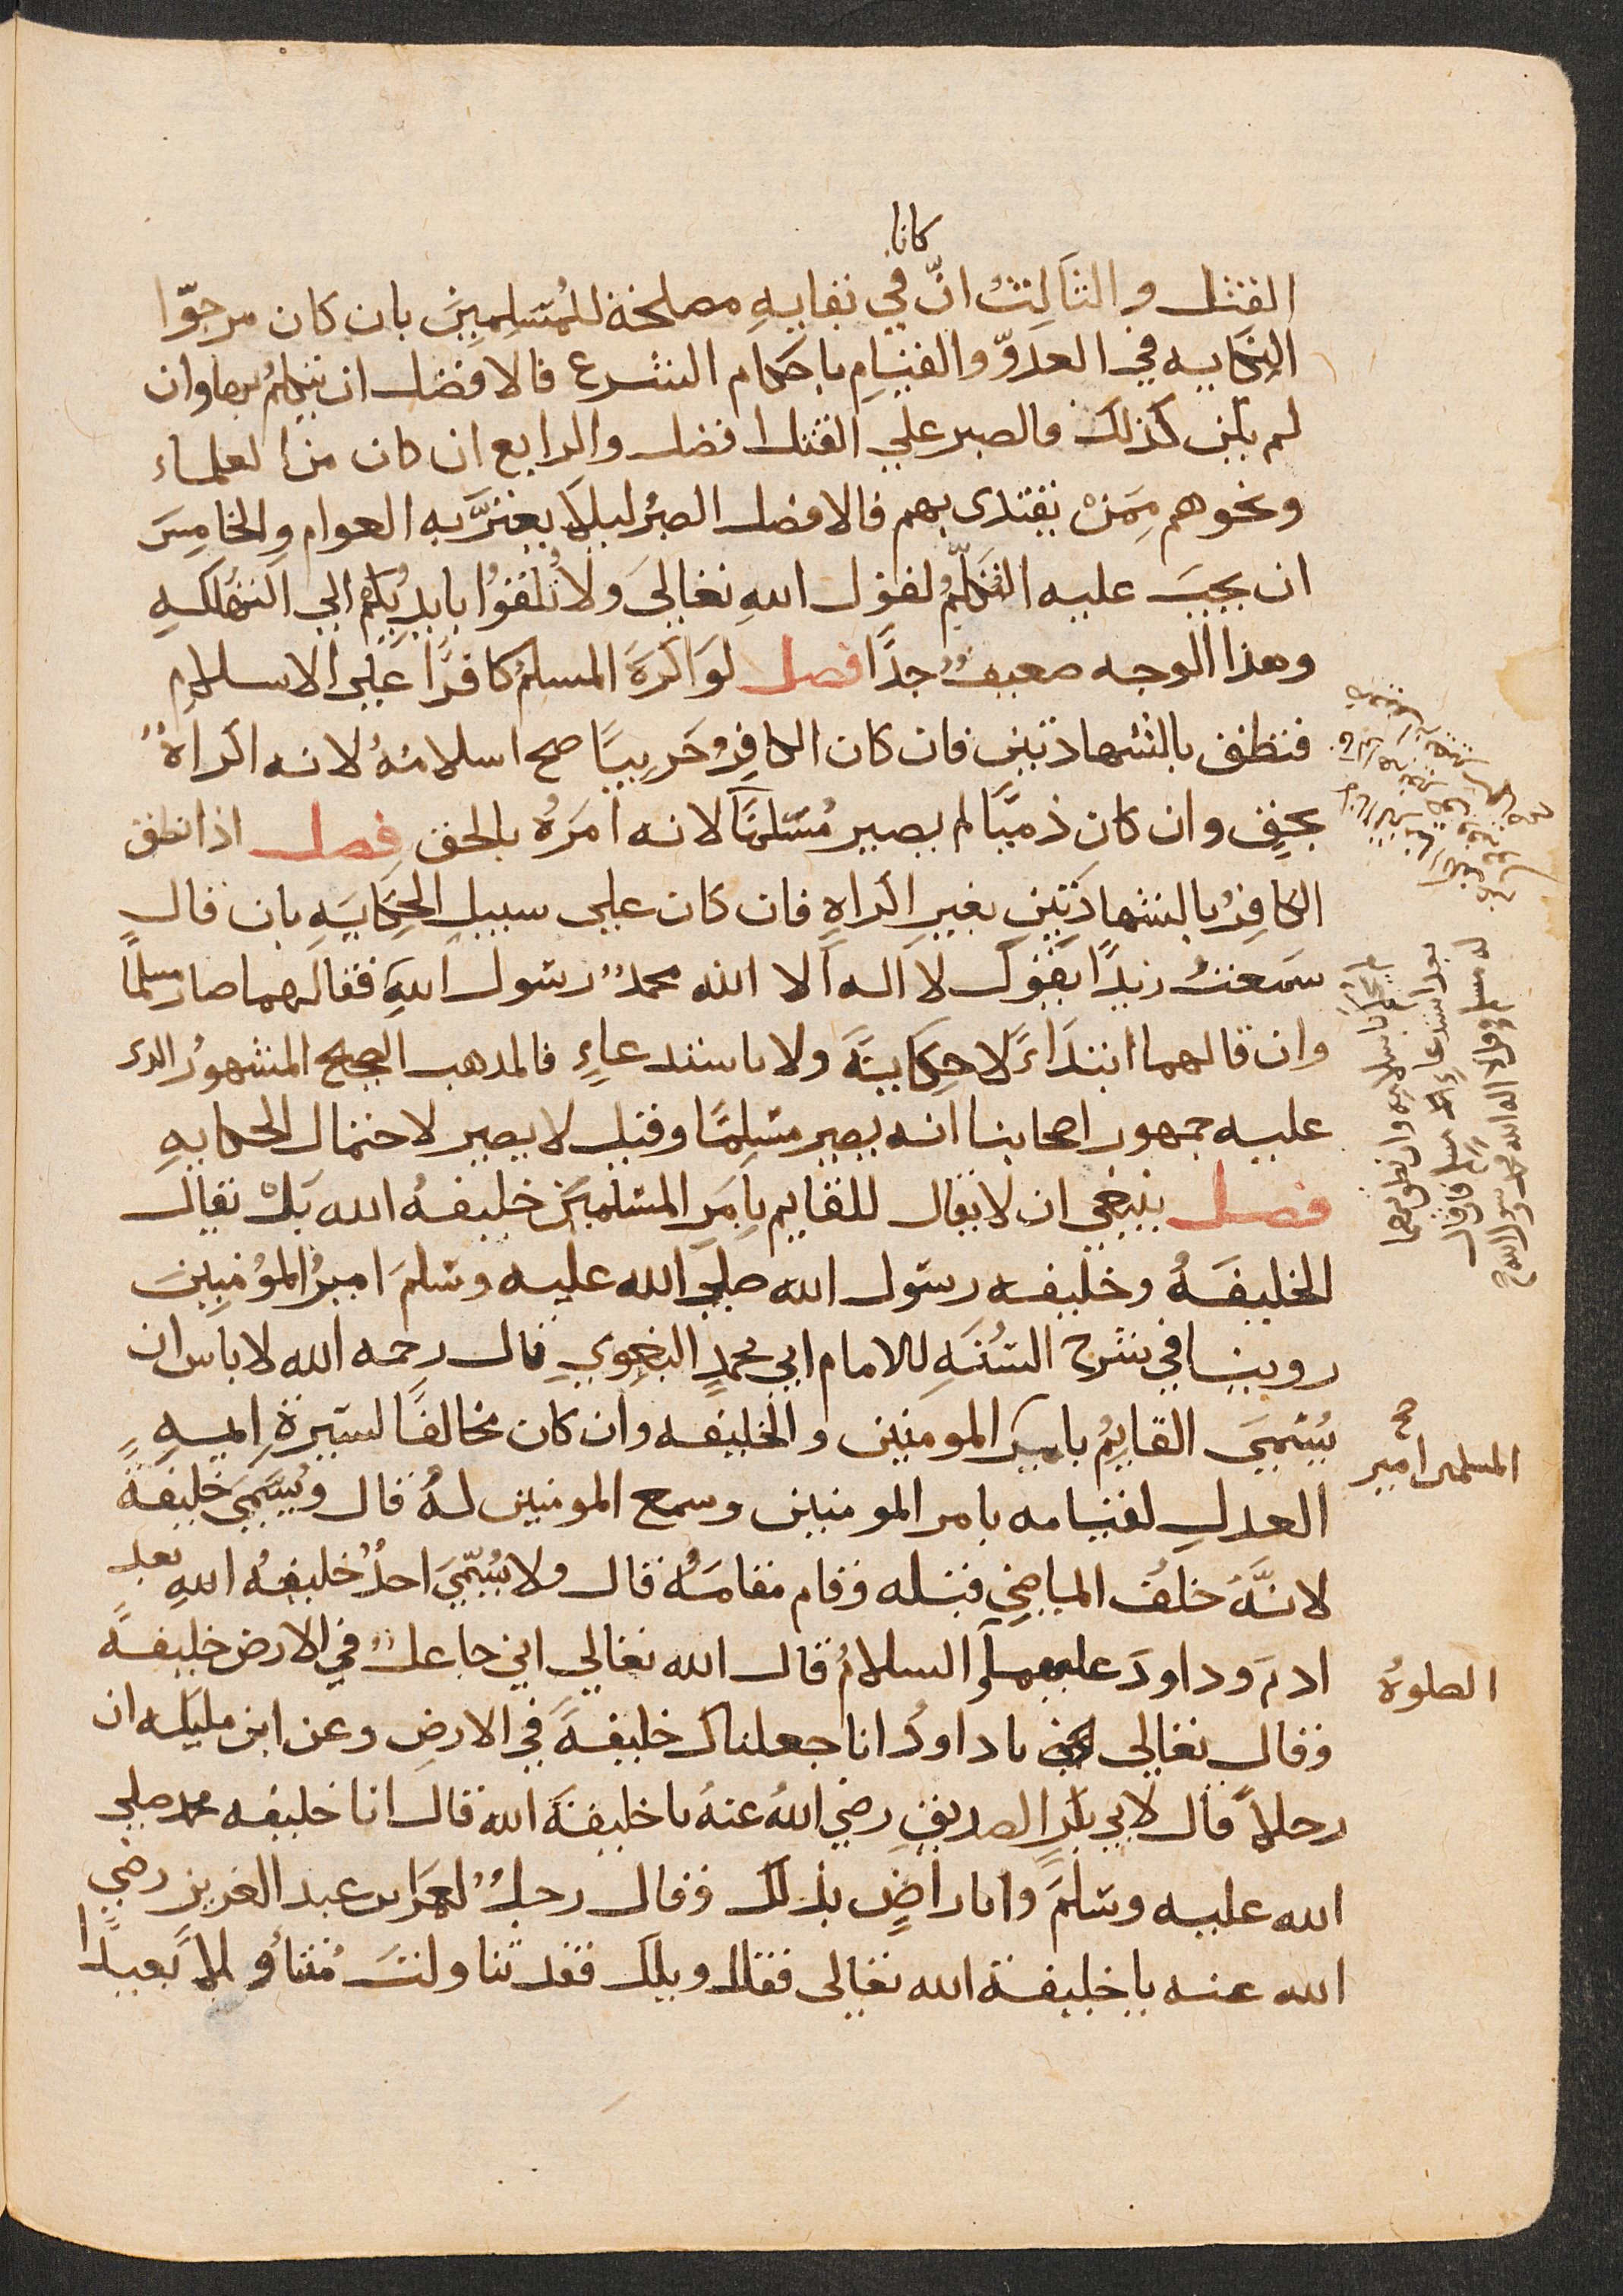 كانا
القتل والثالث ان في بقايه مصلحة للمُسلِمِينَ بان كان مرجوّا
النكايه في العدوّ والقيامِ باحكام الشرع فالافضل ان يتكلمُ بها وان
لم يكن كذلك فالصبر علي القتل افضل والرابع ان كان من العلماء
ونحوهم مِمَنْ يقتدى بهم فالافضل الصبرُ ليلا يغترَّ به العوام والخامِسَ
ان يجبَ عليه التكلّمُ لقول اللهِ تعاليَ ولا تُلقوُا بايدِيكُم الي التهلُكهِ
وهذا الوجه ضعيفٌ جدًا فصل لوَ اكرَهَ المسلمُ كافرًا علي الاسلامِ
فنطق بالشهادتين فان كان الكافِرُ حَربِيًا صح اسلامُهُ لانه اكراهٌ
بحقٍ وان كان ذميًّا لم يصير مُسْلمًا لانه امَرَهُ بالحق فصل اذا نطق
الكافِرُ بالشهادَتَينِ بغيرِ اكراهٍ فان كان علي سبيلِ الحِكَايَهِ بان قال
سَمعتُ زيدًا يقول لا اله الا الله محمدٌ رسول اللهِ فقالهما صار مسلمًا
وان قالهما ابتدَاءً لا حِكَايَةَ ولا باستدعاءٍ فالمدهب الصحيح المشهورُ الدى
عليه جمهور اصحابنا انه يصير مسْلِمًا وقيل لا يصير لاحتمال الحكايهِ
فصل ينبغي ان لا يقال للقايم بِامَرِ المسْلمينَ خليفهُ الله بَلْ يقال
الخليفَهُ وخليفه رسَول الله صلي الله عليه وسَلمَ اميرُ المؤمنِينَ
روينا في شرح السُنَهِ للامام ابي محمدٍ البغوي قال رحمه الله لا باس ان
يُسَميَ القايمُ بامير المومنين والخليفه وان كان مخالفًا لسيرةِ ايمهِ
المسلمين امير صح
العدلِ لقيامه بامر المومنين وسمع المومنين لهُ قال ويُسَميَ خليفةً
لانَّهُ خلفَ الماضي قبله وقام مقامَهُ قال ولا يُسَميَ احدٌ خليفهُ اللهِ بعد
ادمَ وداودَ عليهما السلامُ قال الله تعالي اني جاعلٌ في الارض خليفهً
الصلوهُ
وقال تعالي يا داودُ انا جعلناك خليفهً في الارضِ وعن ابن مليكه ان
رجلاً قال لابي بكرٍ الصديقِ رضي اللهُ عنهُ يا خليفةَ الله قال انا خليفه محمد صلي
الله عليه وسَلمَ وانا راضٍ بذلك وقال رجلٌ لعمَر ابن عبد العزيز رضي
الله عنه يا خليفة الله تعالى فقال ويلك فقد تناولتَ مُتناوَلاً بعيدًا